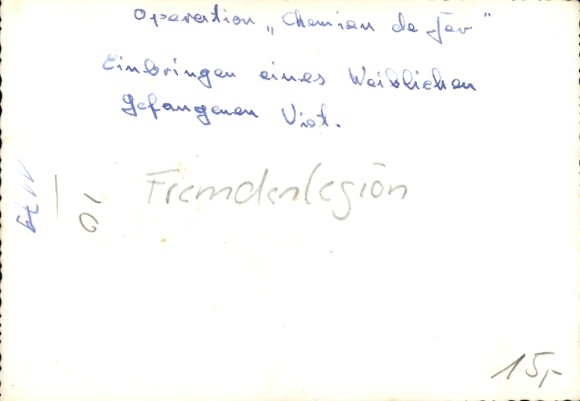 Operation „Chemien de fer"
Einbringen eines Weiblichen
Gefangenen Viet.
Fremdenlegion
15,-